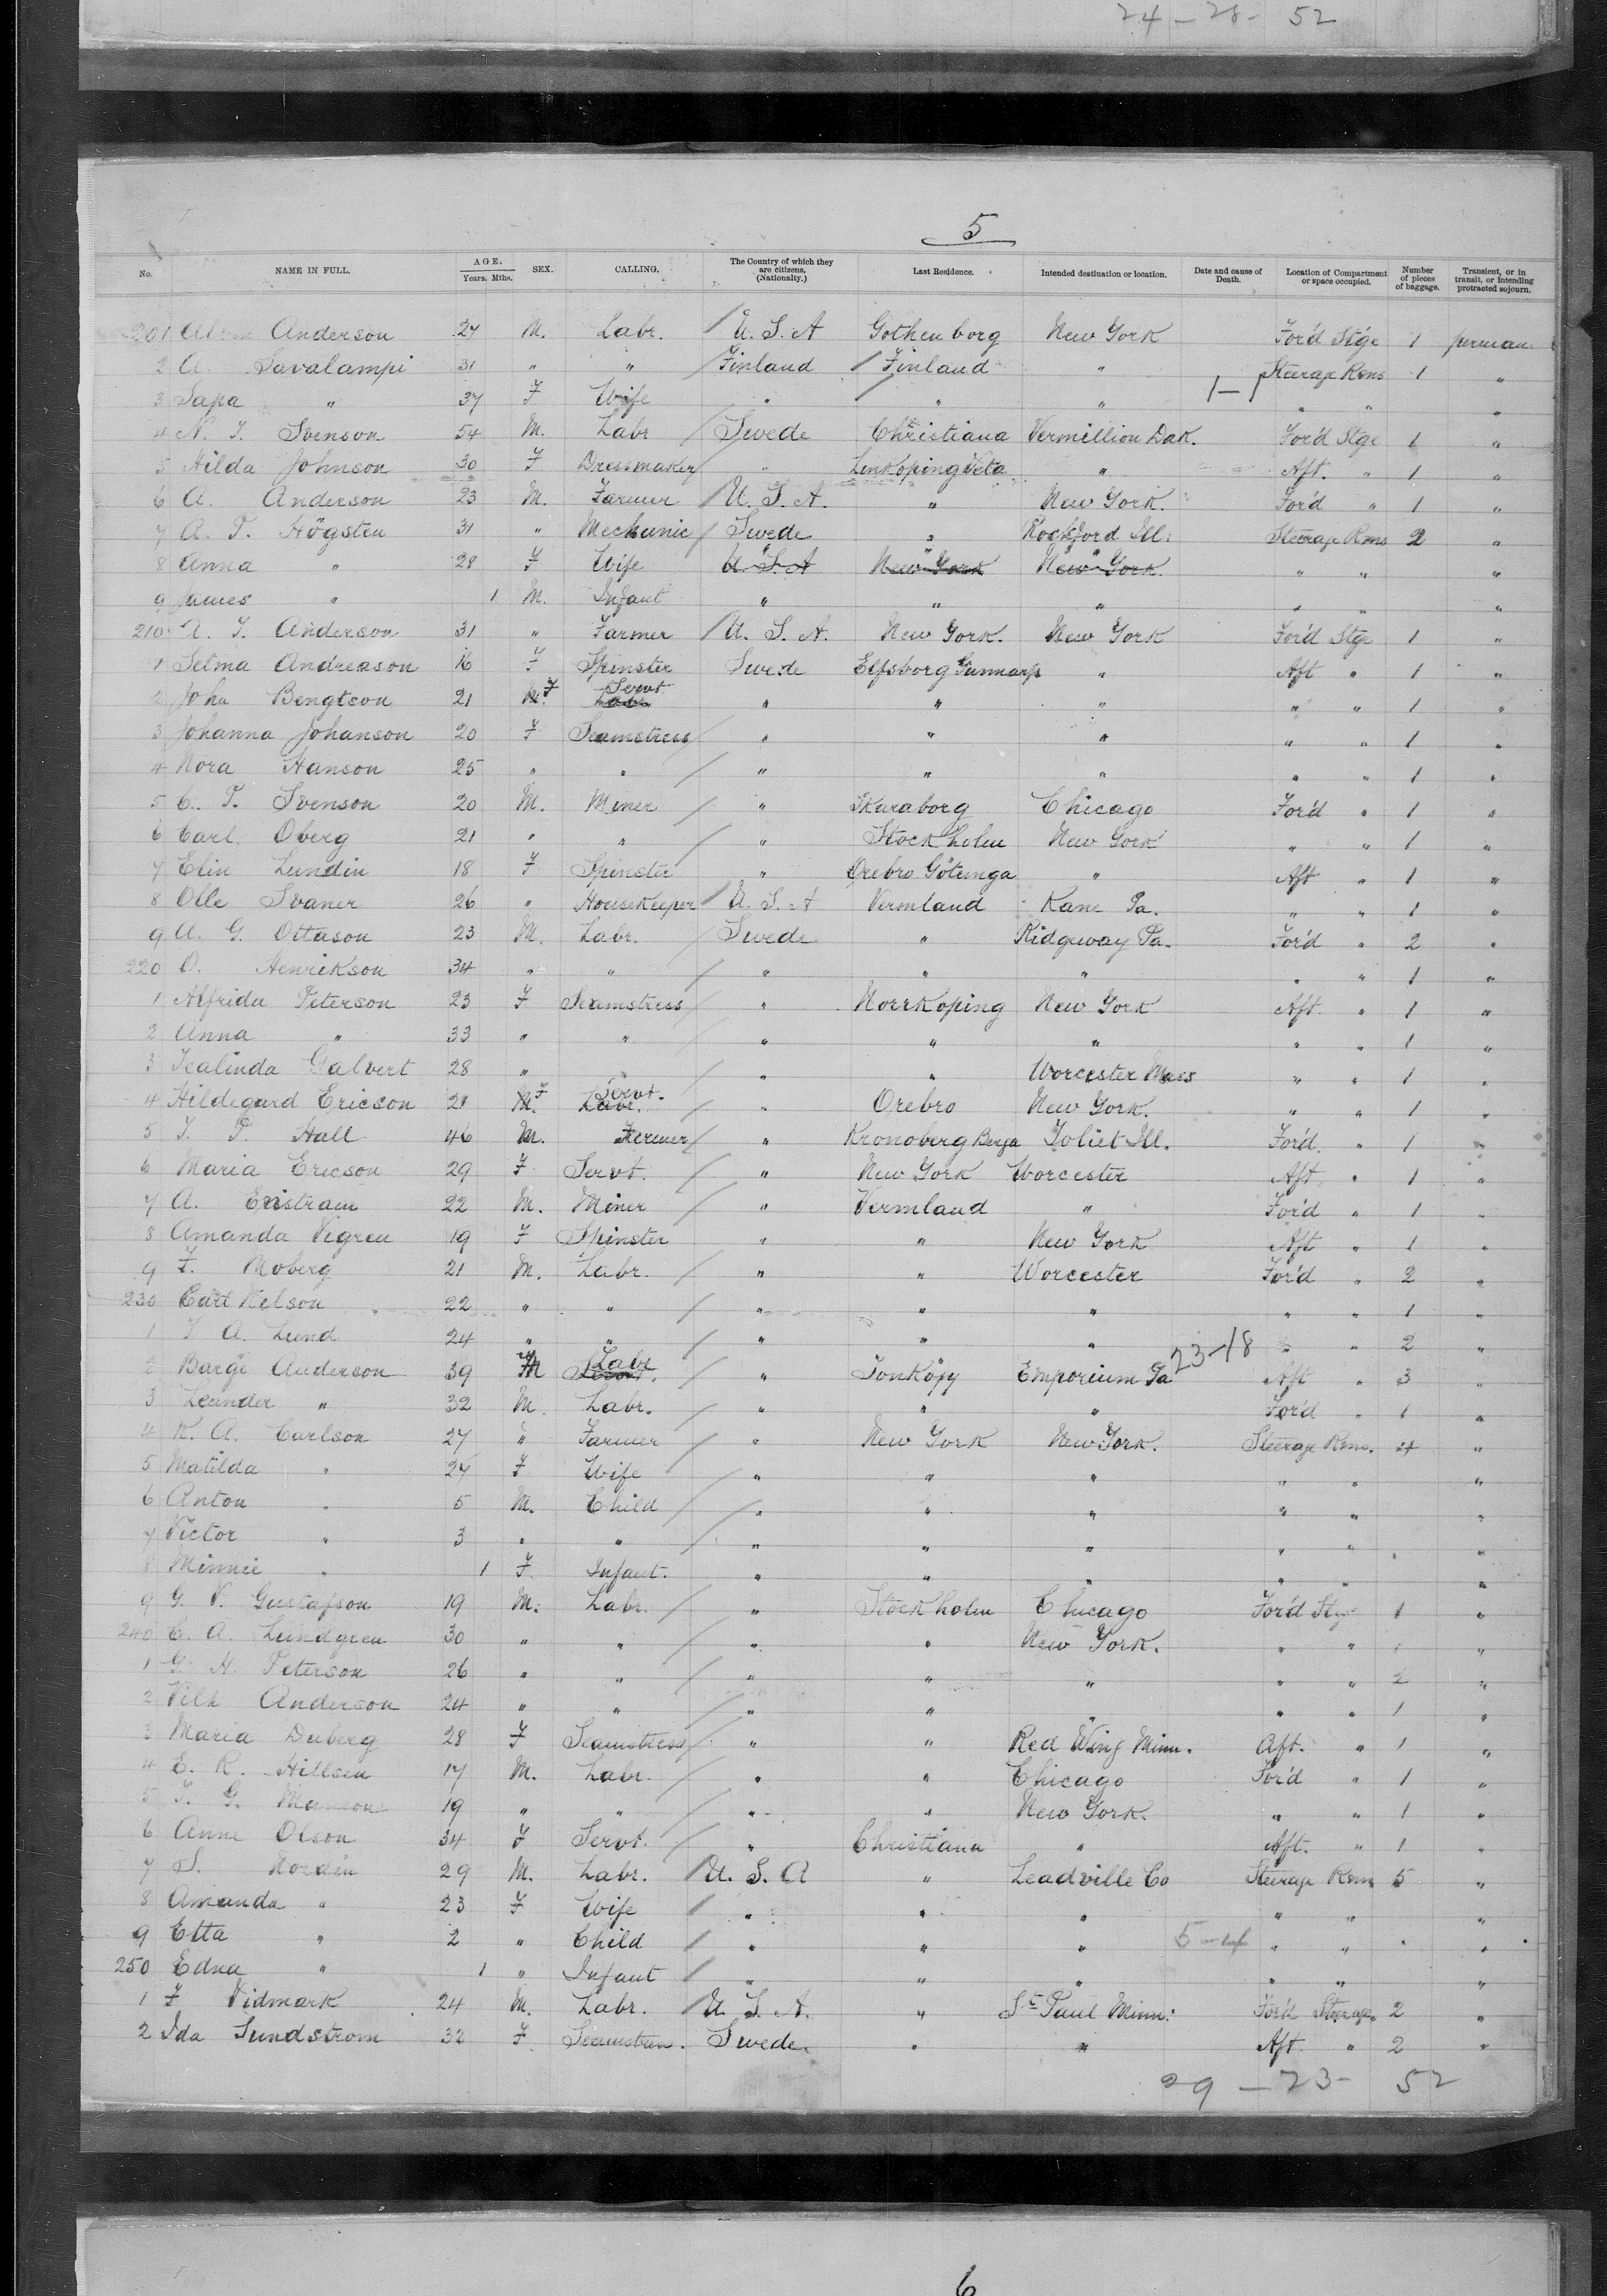 24 - 28 - 52
5
No. NAME IN FULL. AGE. Years. Mths. SEX. CALLING. The Country of which they are citizens. (Nationality.) Last Residence. Intended destination or location. Date and cause of Death. Location of Compartment or space occupied. Number of pieces of baggage. Transient, or in transit, or intending protracted sojourn.
201 Anderson 27 M. Labr. U. S. A Gothenborg New York For'd Stge 1 perman
2 A. Savalampi 31 " " Finland Finland " Steerage Rms 1 "
3 Sapa " 37 F Wife " " " 1-1 " " "
4 N. J. Svenson 54 M. Labr Swede Christiana Vermillion Dak. For'd Stge 1 "
5 Hilda Johnson 30 F Dressmaker " Linkoping Veta " Aft. " 1 "
6 A. Anderson 23 M. Farmer U. S. A. " New York. For'd " 1 "
7 A. P. Högsten 31 " Mechanic Swede " Rockford Ill. Steerage Rms 2 "
8 Anna " 28 F Wife U. S. A New York New York " " "
9 James " 1 M. Infant " " " " " "
210 A. J. Anderson 31 " Farmer U. S. A. New York. New York For'd Stge 1 "
1 Selma Andreason 16 F Spinster Swede Elfsborg Gunnarp " Aft " 1 "
2 Joha Bengtson 21 M. F Servt Labr " " " " " 1 "
3 Johanna Johanson 20 F Seamstress " " " " " 1 "
4 Nora Hanson 25 " " " " " " " 1 "
5 C. P. Svenson 20 M. Miner " Skaraborg Chicago For'd " 1 "
6 Carl Oberg 21 " " " Stockholm New York " " 1 "
7 Elin Lundin 18 F Spinster " Orebro Götunga " Aft " 1 "
8 Olle Svaner 26 " Housekeeper U. S. A Vermland Kane Pa. " " 1 "
9 A. G. Ottason 23 M. Labr. Swede " Ridgeway Pa. For'd " 2 "
220 O. Henrikson 34 " " " " " " " 1 "
1 Alfrida Peterson 23 F Seamstress " Norrkoping New York Aft. " 1 "
2 Anna " 33 " " " " " " " 1 "
3 Tealinda Galvert 28 " " " " Worcester Mass " " 1 "
4 Hildegard Ericson 21 M. F Servt. Labr. " Orebro New York. " " 1 "
5 J. P. Hall 46 M. Farmer " Kronoberg Berga Joliet Ill. For'd. " 1 "
6 Maria Ericson 29 F Servt. " New York Worcester Aft. " 1 "
7 A. Enistram 22 M. Miner " Vermland " For'd " 1 "
8 Amanda Vigren 19 F Spinster " " New York Aft " 1 "
9 F. Moberg 21 M. Labr. " " Worcester For'd " 2 "
230 Carl Nelson 22 " " " " " " " 1 "
1 J A. Lund 24 " " " " " 23-18 " " 2 "
2 Barge Anderson 39 M Labr Servt. " Jonkopy Emporium Pa Aft " 3 "
3 Leander " 32 M. Labr. " " " For'd " 1 "
4 K. A. Carlson 27 " Farmer " New York New York. Steerage Rms. 4 "
5 Matilda " 27 F Wife " " " " " "
6 Anton " 5 M. Child " " " " " "
7 Victor " 3 " " " " " " " " "
8 Minnie " 1 F. Infant. " " " " " "
9 G. V. Gustafson 19 M. Labr. " Stockholm Chicago For'd Stge 1 "
240 C. A. Lundgren 30 " " " " New York. " " 1 "
1 G. H. Peterson 26 " " " " " " " 2 "
2 Vilh Anderson 24 " " " " " " " 1 "
3 Maria Duberg 28 F Seamstress " " Red Wing Minn. Aft. " 1 "
4 E. R. Hillsen 17 M. Labr. " " Chicago For'd " 1 "
5 J. G. 19 " " " " New York. " " 1 "
6 Anne Olson 34 F Servt. " Christiana " Aft. " 1 "
7 S. Nordin 29 M. Labr. U. S. A " Leadville Co Steerage Rms 5 "
8 Amanda " 23 F Wife " " " " " "
9 Etta " 2 " Child " " " 5-4 " " " "
250 Edna " 1 " Infant " " " " " "
1 F Vidmark 24 M. Labr. U. S. A. " St Paul Minn. For'd Steerage 2 "
2 Ida Sundstrom 32 F. Seamstress. Swede. " " Aft. " 2 "
29 - 23 - 52
6